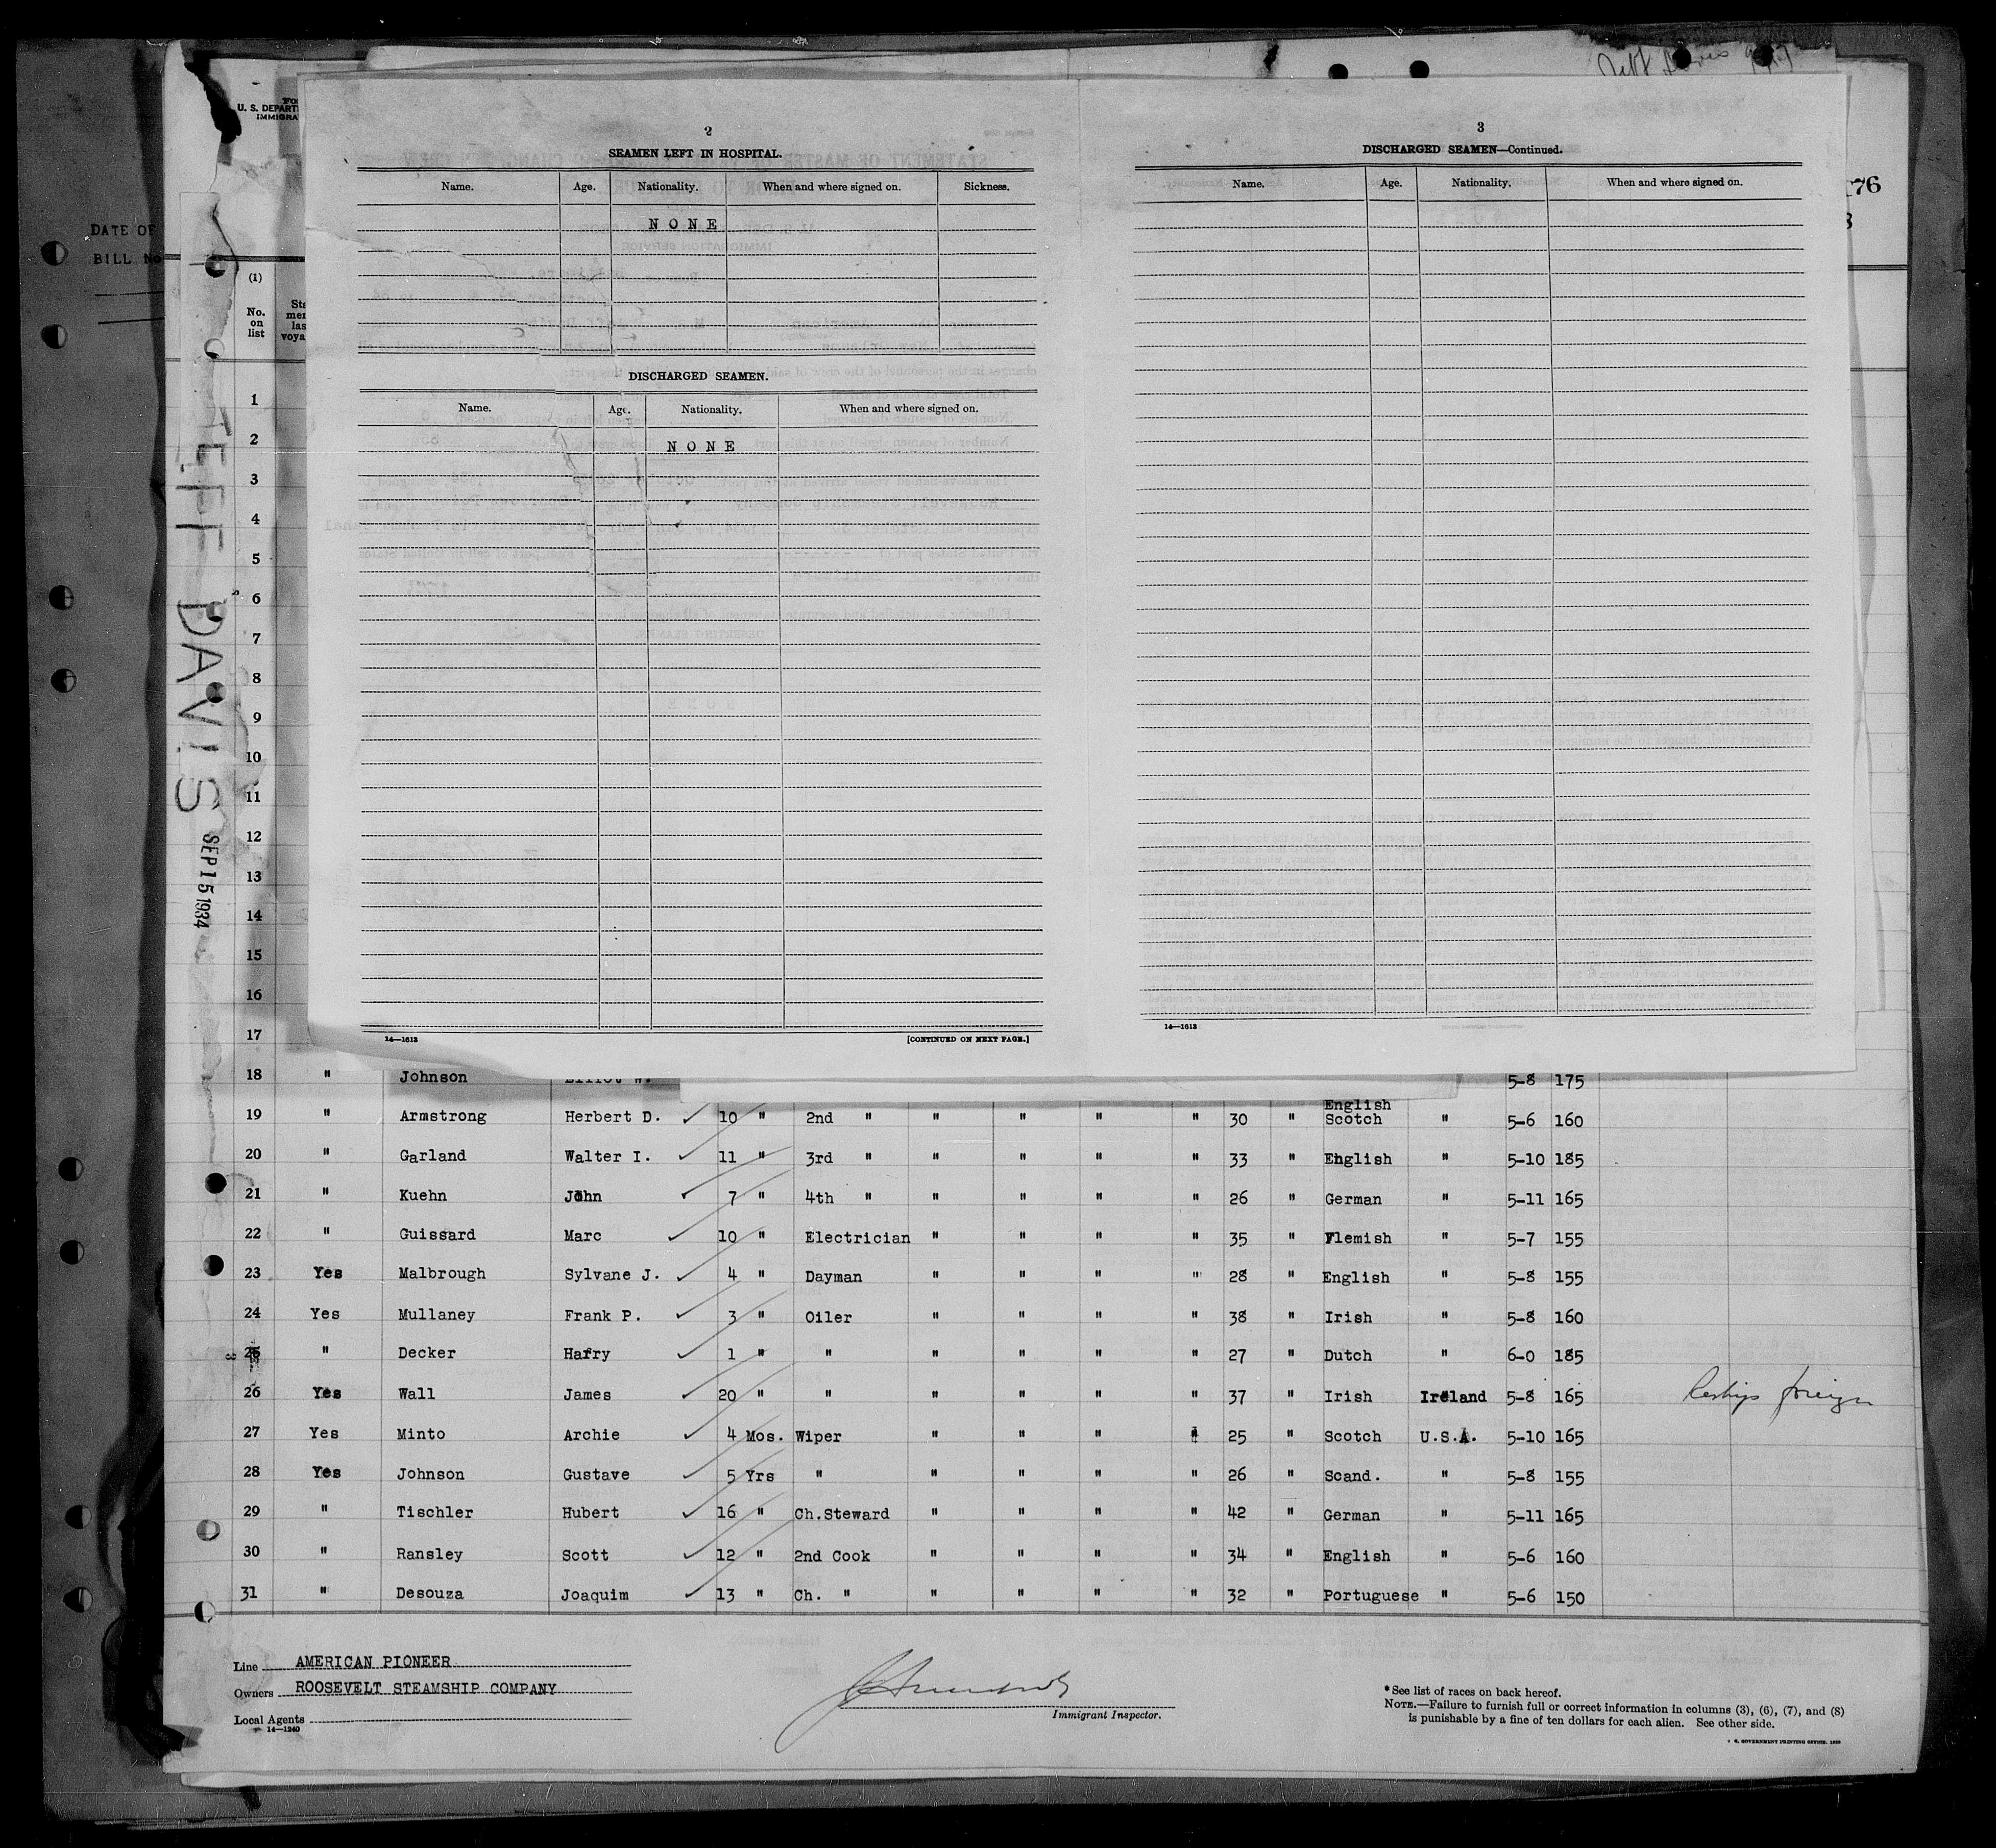 JEFF DAVIS
SEP 15 1934
DATE OF
BILL No
U. S. DEPART
IMMIGRA
76
(1)
No.
on
list
2
SEAMEN LEFT IN HOSPITAL.
Name. Age. Nationality. When and where signed on. Sickness.
NONE
DISCHARGED SEAMEN.
Name. Age. Nationality. When and where signed on.
NONE
14—1613 [CONTINUED ON NEXT PAGE.]
3
DISCHARGED SEAMEN—Continued.
Name. Age. Nationality. When and where signed on.
14—1613
1
2
3
4
5
6
7
8
9
10
11
12
13
14
15
16
17
18 " Johnson Elliot W. 5-8 175
19 " Armstrong Herbert D. ✓ 10 " 2nd " " " " " 30 " English Scotch " 5-6 160
20 " Garland Walter I. ✓ 11 " 3rd " " " " " 33 " English " 5-10 185
21 " Kuehn John ✓ 7 " 4th " " " " " 26 " German " 5-11 165
22 " Guissard Marc ✓ 10 " Electrician " " " " 35 " Flemish " 5-7 155
23 Yes Malbrough Sylvane J. ✓ 4 " Dayman " " " " 28 " English " 5-8 155
24 Yes Mullaney Frank P. ✓ 3 " Oiler " " " " 38 " Irish " 5-8 160
25 " Decker Harry ✓ 1 " " " " " " 27 " Dutch " 6-0 185
26 Yes Wall James ✓ 20 " " " " " " 37 " Irish Ireland 5-8 165
27 Yes Minto Archie ✓ 4 Mos. Wiper " " " " 25 " Scotch U.S.A. 5-10 165
28 Yes Johnson Gustave ✓ 5 Yrs " " " " " 26 " Scand. " 5-8 155
29 " Tischler Hubert ✓ 16 " Ch.Steward " " " " 42 " German " 5-11 165
30 " Ransley Scott ✓ 12 " 2nd Cook " " " " 34 " English " 5-6 160
31 " Desouza Joaquim ✓ 13 " Ch. " " " " " 32 " Portuguese " 5-6 150
Line AMERICAN PIONEER
Owners ROOSEVELT STEAMSHIP COMPANY
Local Agents
14—1240
Immigrant Inspector.
* See list of races on back hereof.
NOTE.—Failure to furnish full or correct information in columns (3), (6), (7), and (8)
is punishable by a fine of ten dollars for each alien. See other side.
GOVERNMENT PRINTING OFFICE